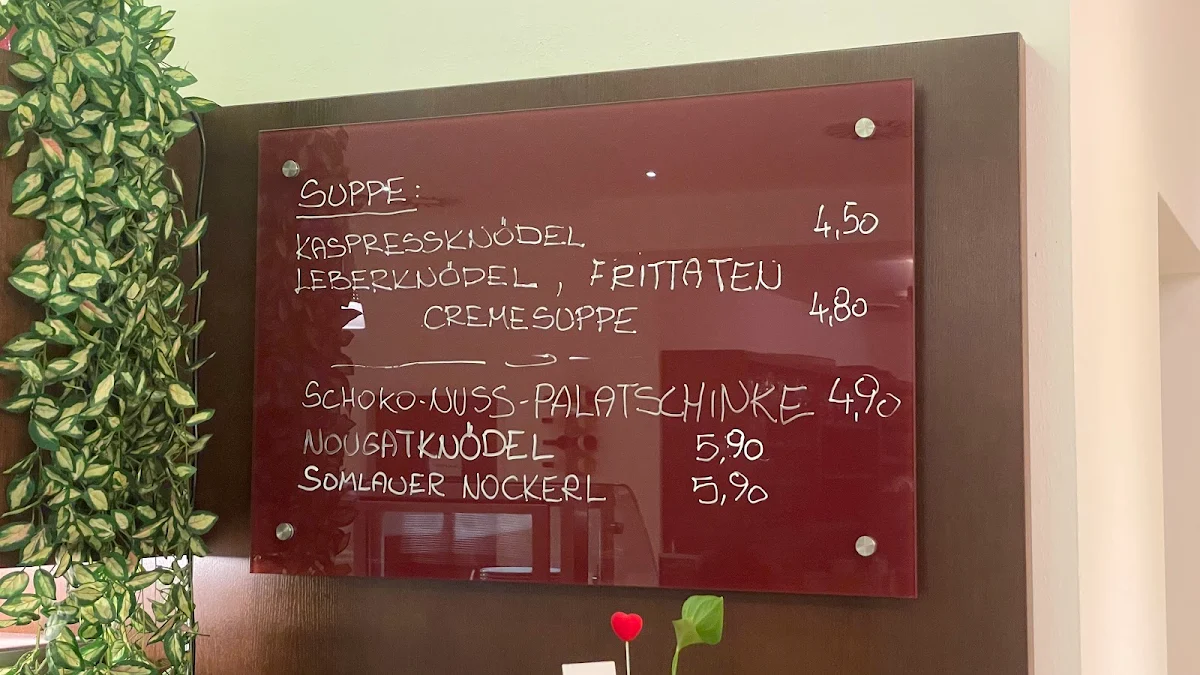 SUPPE:
KASPRESSKNÖDEL 4,50
LEBERKNÖDEL, FRITTATEN
CREMESUPPE 4,80
SCHOKO-NUSS-PALATSCHINKE 4,90
NOUGATKNÖDEL 5,90
SOMLAUER NOCKERL 5,90